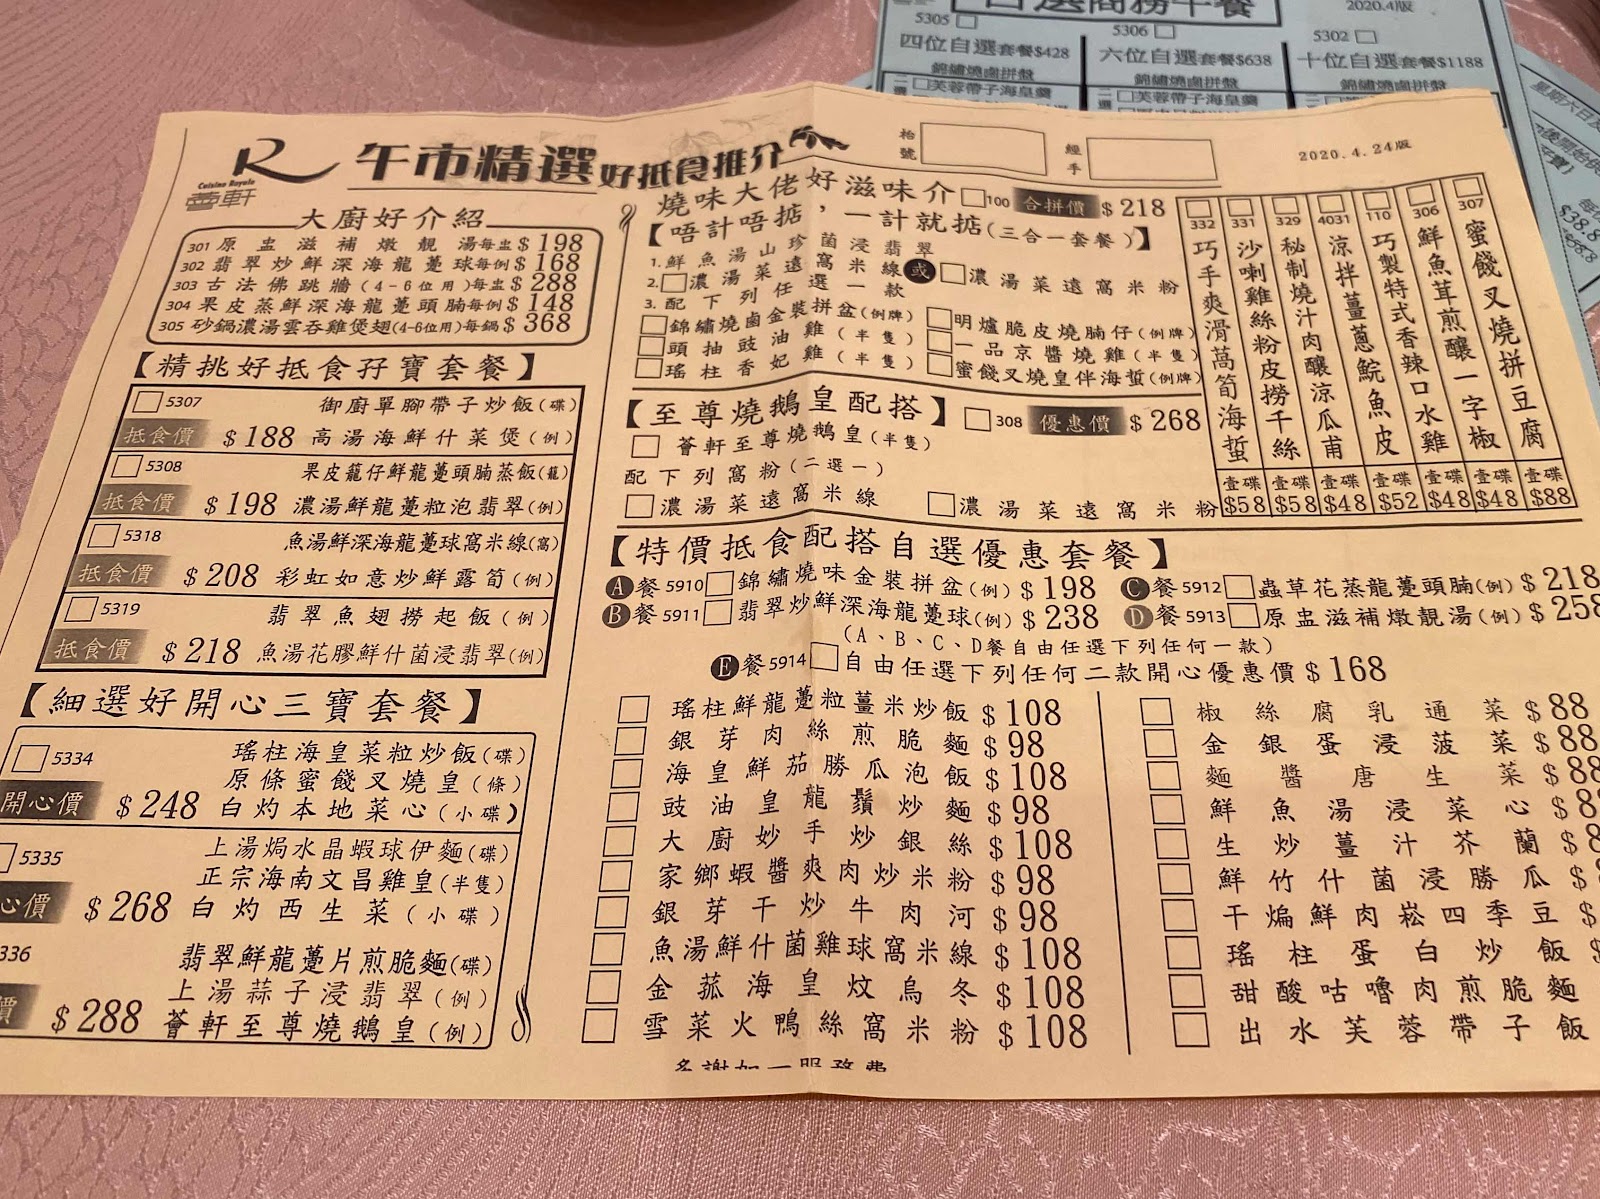 2020.4版
5305
四位自選套餐$428
錦繡燒鹵拼盤
芙蓉帶子海皇羹
5306
六位自選套餐$638
錦繡燒鹵拼盤
芙蓉帶子海皇羹
5302
十位自選套餐$1188
錦繡燒鹵拼盤
芙蓉帶子海皇羹
R
Cuisine Royale
薈軒
午市精選好抵食推介
枱號
經手
2020.4.24版
大廚好介紹
301 原盅滋補燉靚湯每盅$198
302 翡翠炒鮮深海龍躉球每例$168
303 古法佛跳牆(4-6位用)每盅$288
304 果皮蒸鮮深海龍躉頭腩每例$148
305 砂鍋濃湯雲吞雞煲翅(4-6位用)每鍋$368
【精挑好抵食孖寶套餐】
5307 御廚單腳帶子炒飯(碟)
抵食價 $188 高湯海鮮什菜煲(例)
5308 果皮籠仔鮮龍躉頭腩蒸飯(籠)
抵食價 $198 濃湯鮮龍躉粒泡翡翠(例)
5318 魚湯鮮深海龍躉球窩米線(窩)
抵食價 $208 彩虹如意炒鮮露筍(例)
5319 翡翠魚翅撈起飯(例)
抵食價 $218 魚湯花膠鮮什菌浸翡翠(例)
【細選好開心三寶套餐】
5334 瑤柱海皇菜粒炒飯(碟)
原條蜜餞叉燒皇(條)
開心價 $248 白灼本地菜心(小碟)
5335 上湯焗水晶蝦球伊麵(碟)
正宗海南文昌雞皇(半隻)
心價 $268 白灼西生菜(小碟)
336 翡翠鮮龍躉片煎脆麵(碟)
上湯蒜子浸翡翠(例)
價 $288 薈軒至尊燒鵝皇(例)
燒味大佬好滋味介 100 合拼價 $218
【唔計唔掂，一計就掂(三合一套餐)】
1.鮮魚湯山珍菌浸翡翠
2.濃湯菜遠窩米線 或 濃湯菜遠窩米粉
3.配下列任選一款
錦繡燒鹵金裝拼盆(例牌) 明爐脆皮燒腩仔(例牌)
頭抽豉油雞(半隻) 一品京醬燒雞(半隻)
瑤柱香妃雞(半隻) 蜜餞叉燒皇伴海蜇(例牌)
【至尊燒鵝皇配搭】 308 優惠價 $268
薈軒至尊燒鵝皇(半隻)
配下列窩粉(二選一)
濃湯菜遠窩米線 濃湯菜遠窩米粉
332 巧手爽滑萵筍海蜇 壹碟 $58
331 沙喇雞絲粉皮撈千絲 壹碟 $58
329 秘制燒汁肉釀涼瓜甫 壹碟 $48
4031 涼拌薑蔥鯇魚皮 壹碟 $52
110 巧製特式香辣口水雞 壹碟 $48
306 鮮魚茸煎釀一字椒 壹碟 $48
307 蜜餞叉燒拼豆腐 壹碟 $88
【特價抵食配搭自選優惠套餐】
A餐 5910 錦繡燒味金裝拼盆(例)$198 C餐 5912 蟲草花蒸龍躉頭腩(例)$218
B餐 5911 翡翠炒鮮深海龍躉球(例)$238 D餐 5913 原盅滋補燉靚湯(例)$258
(A、B、C、D餐自由任選下列任何一款)
E餐 5914 自由任選下列任何二款開心優惠價$168
瑤柱鮮龍躉粒薑米炒飯$108
銀芽肉絲煎脆麵$98
海皇鮮茄勝瓜泡飯$108
豉油皇龍鬚炒麵$98
大廚妙手炒銀絲$108
家鄉蝦醬爽肉炒米粉$98
銀芽干炒牛肉河$98
魚湯鮮什菌雞球窩米線$108
金菰海皇炆烏冬$108
雪菜火鴨絲窩米粉$108
椒絲腐乳通菜$88
金銀蛋浸菠菜$88
麵醬唐生菜$88
鮮魚湯浸菜心$8
生炒薑汁芥蘭$8
鮮竹什菌浸勝瓜$
干煸鮮肉崧四季豆$
瑤柱蛋白炒飯$
甜酸咕嚕肉煎脆麵
出水芙蓉帶子飯
多謝加一服務費